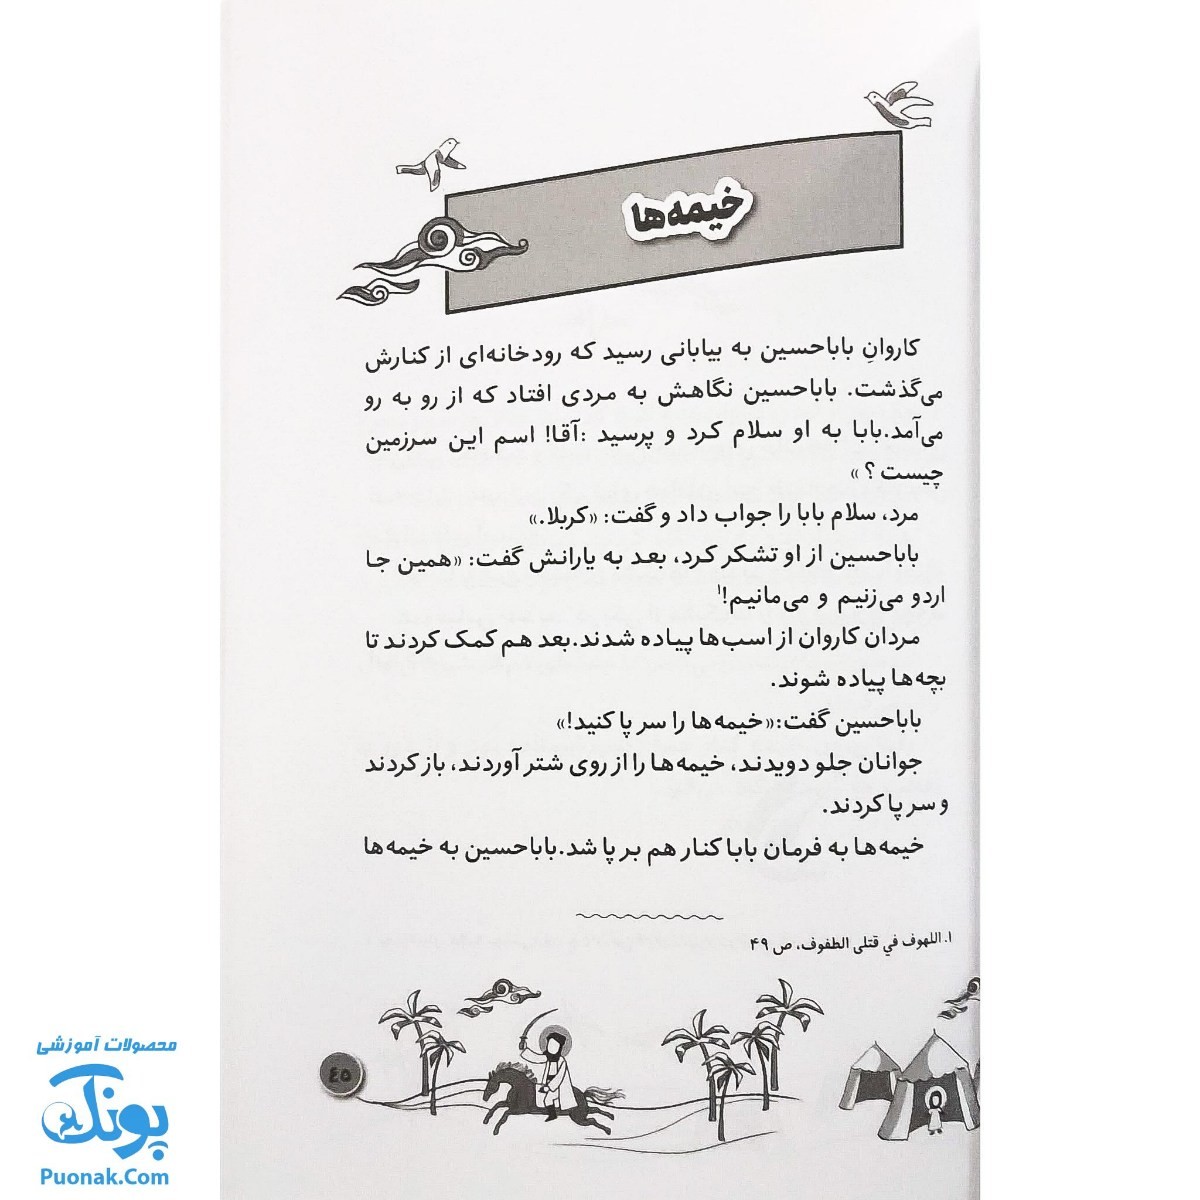 خیمه‌ها
کاروانِ باباحسین به بیابانی رسید که رودخانه‌ای از کنارش
می‌گذشت. باباحسین نگاهش به مردی افتاد که از رو به رو
می‌آمد.بابا به او سلام کرد و پرسید :آقا! اسم این سرزمین
چیست ؟ »
مرد، سلام بابا را جواب داد و گفت: «کربلا.»
باباحسین از او تشکر کرد، بعد به یارانش گفت: «همین جا
اردو می‌زنیم و می‌مانیم!۱
مردان کاروان از اسب‌ها پیاده شدند.بعد هم کمک کردند تا
بچه‌ها پیاده شوند.
باباحسین گفت:«خیمه‌ها را سر پا کنید!»
جوانان جلو دویدند، خیمه‌ها را از روی شتر آوردند، باز کردند
و سر پا کردند.
خیمه‌ها به فرمان بابا کنار هم بر پا شد.باباحسین به خیمه‌ها
۱. اللهوف في قتلى الطفوف، ص ۴۹
۴۵
محصولات آموزشی
پونک
Puonak.Com